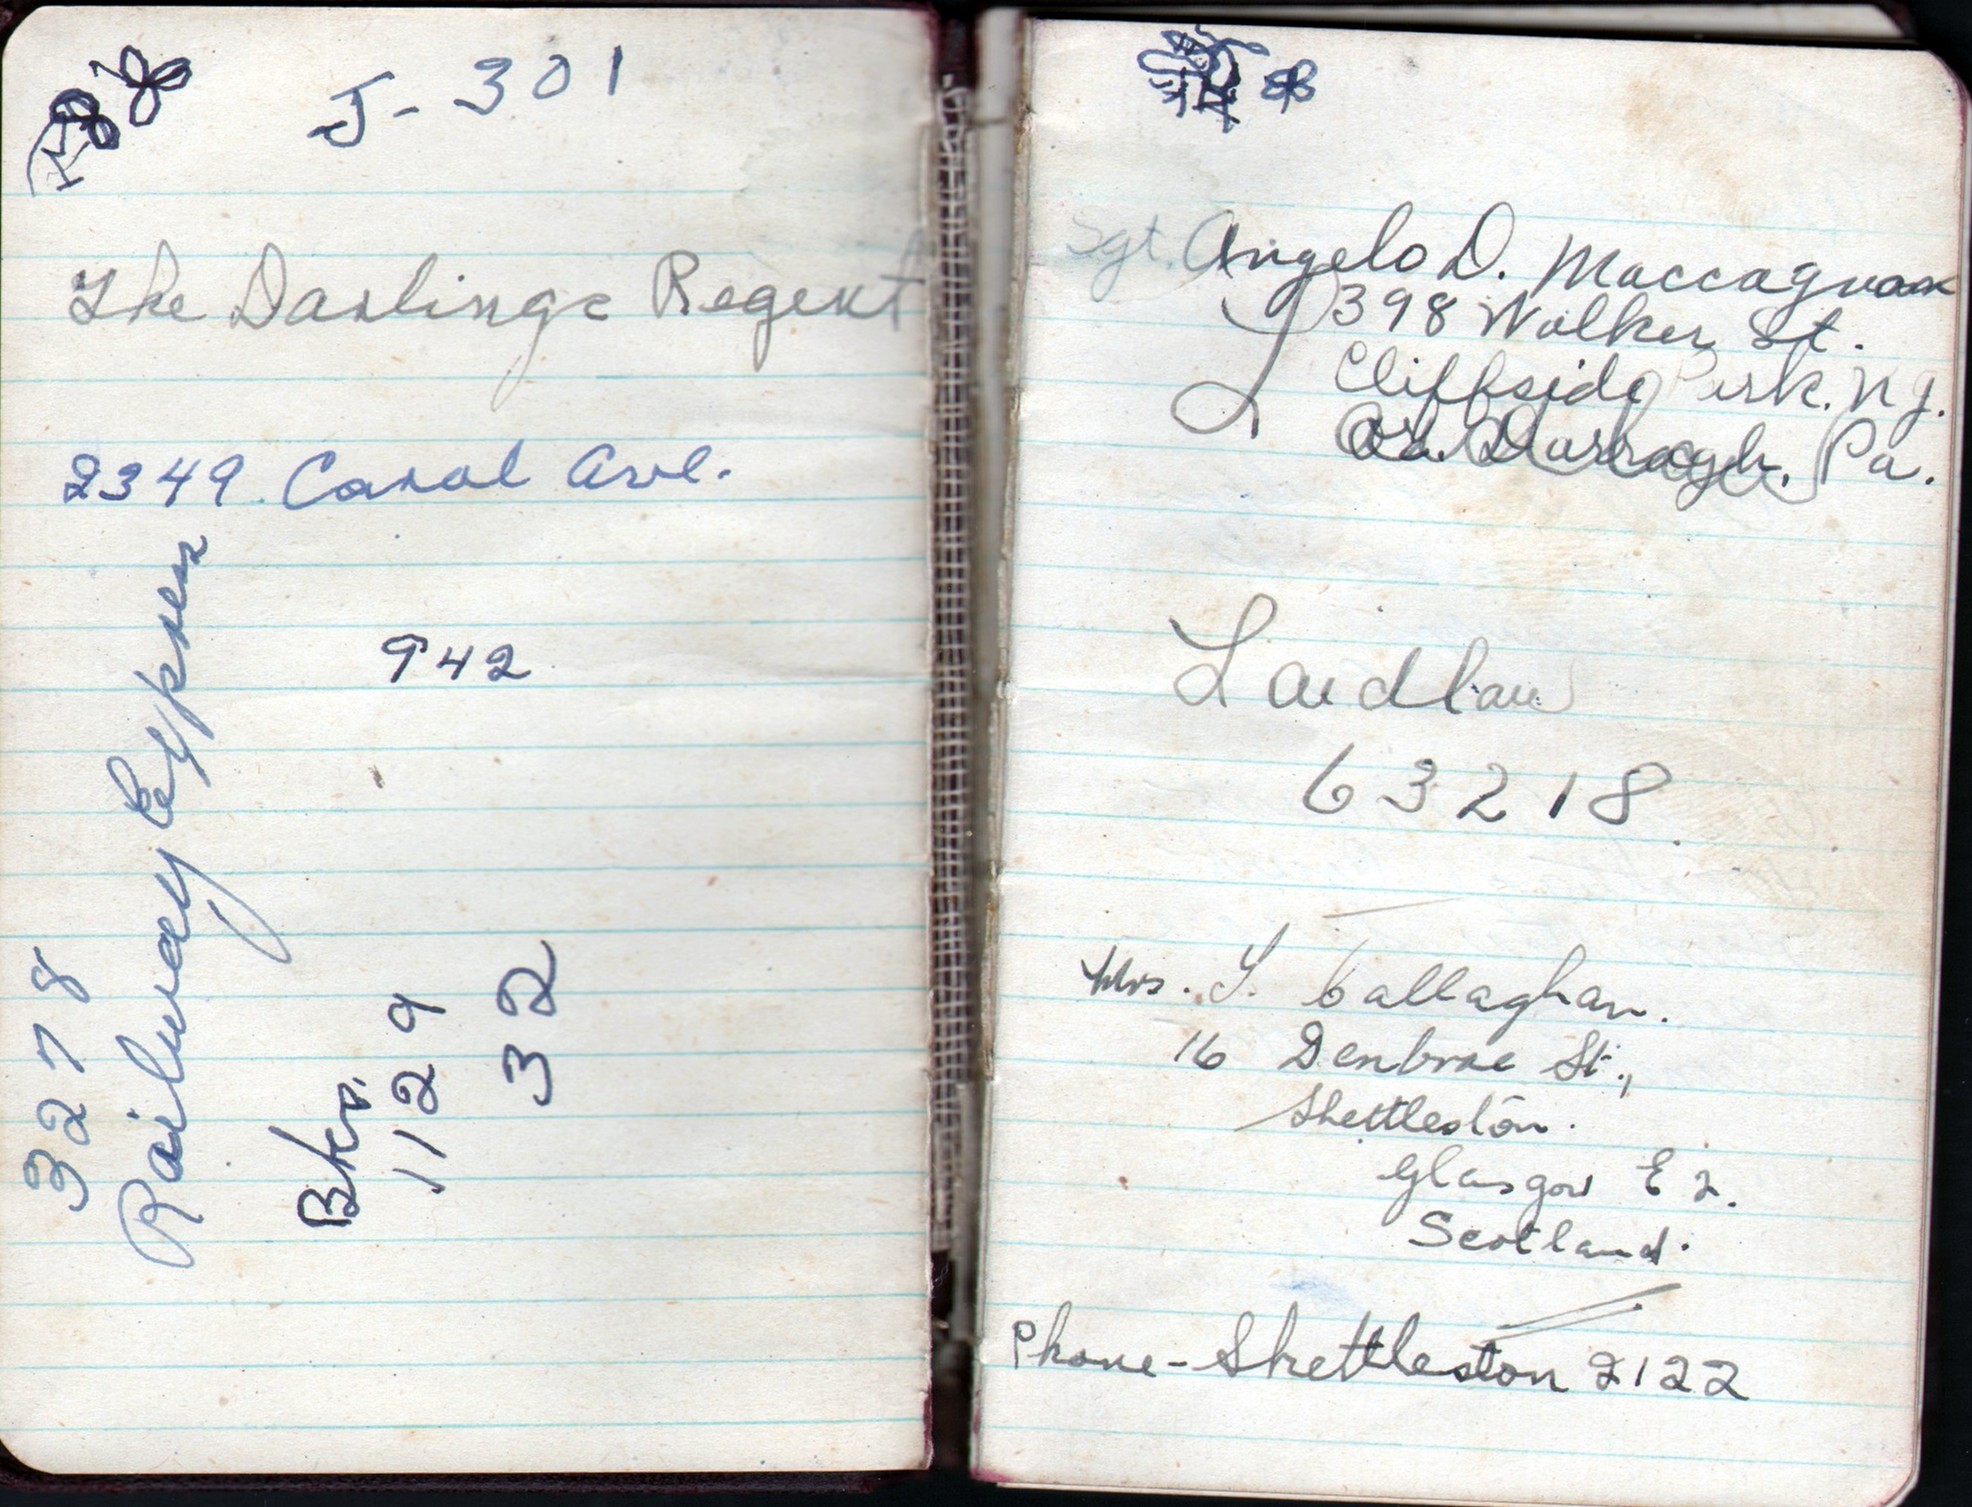 J-301
The Darlings Regent
2349 Canal Ave.
942
3278
Railway Express
Bkr.
1129
32
Sgt. Angelo D. Maccagnan
398 Walker St.
Cliffside Park. N.J.
Darragh. Pa.
Laidlaw
63218
Mrs. Y. Callaghan.
16 Denbrae St.,
Shettleston.
Glasgow E2.
Scotland.
Phone-Shettleston 2122